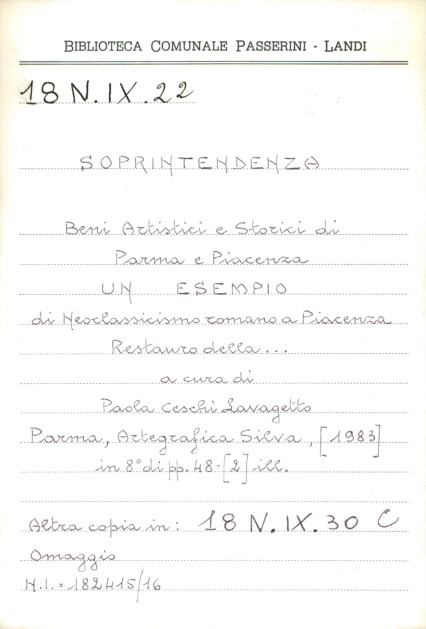 BIBLIOTECA COMUNALE PASSERINI - LANDI
18 N.IX.22
SOPRINTENDENZA
Beni Artistici e Storici di
Parma e Piacenza
UN ESEMPIO
di Neoclassicismo romano a Piacenza
Restauro della...
a cura di
Paola Ceschi Lavagetto
Parma, Artegrafica Silva, [1983]
in 8° di pp. 48-[2] ill.
Altra copia in: 18 N.IX.30 C
Omaggio
N.I.=182415/16